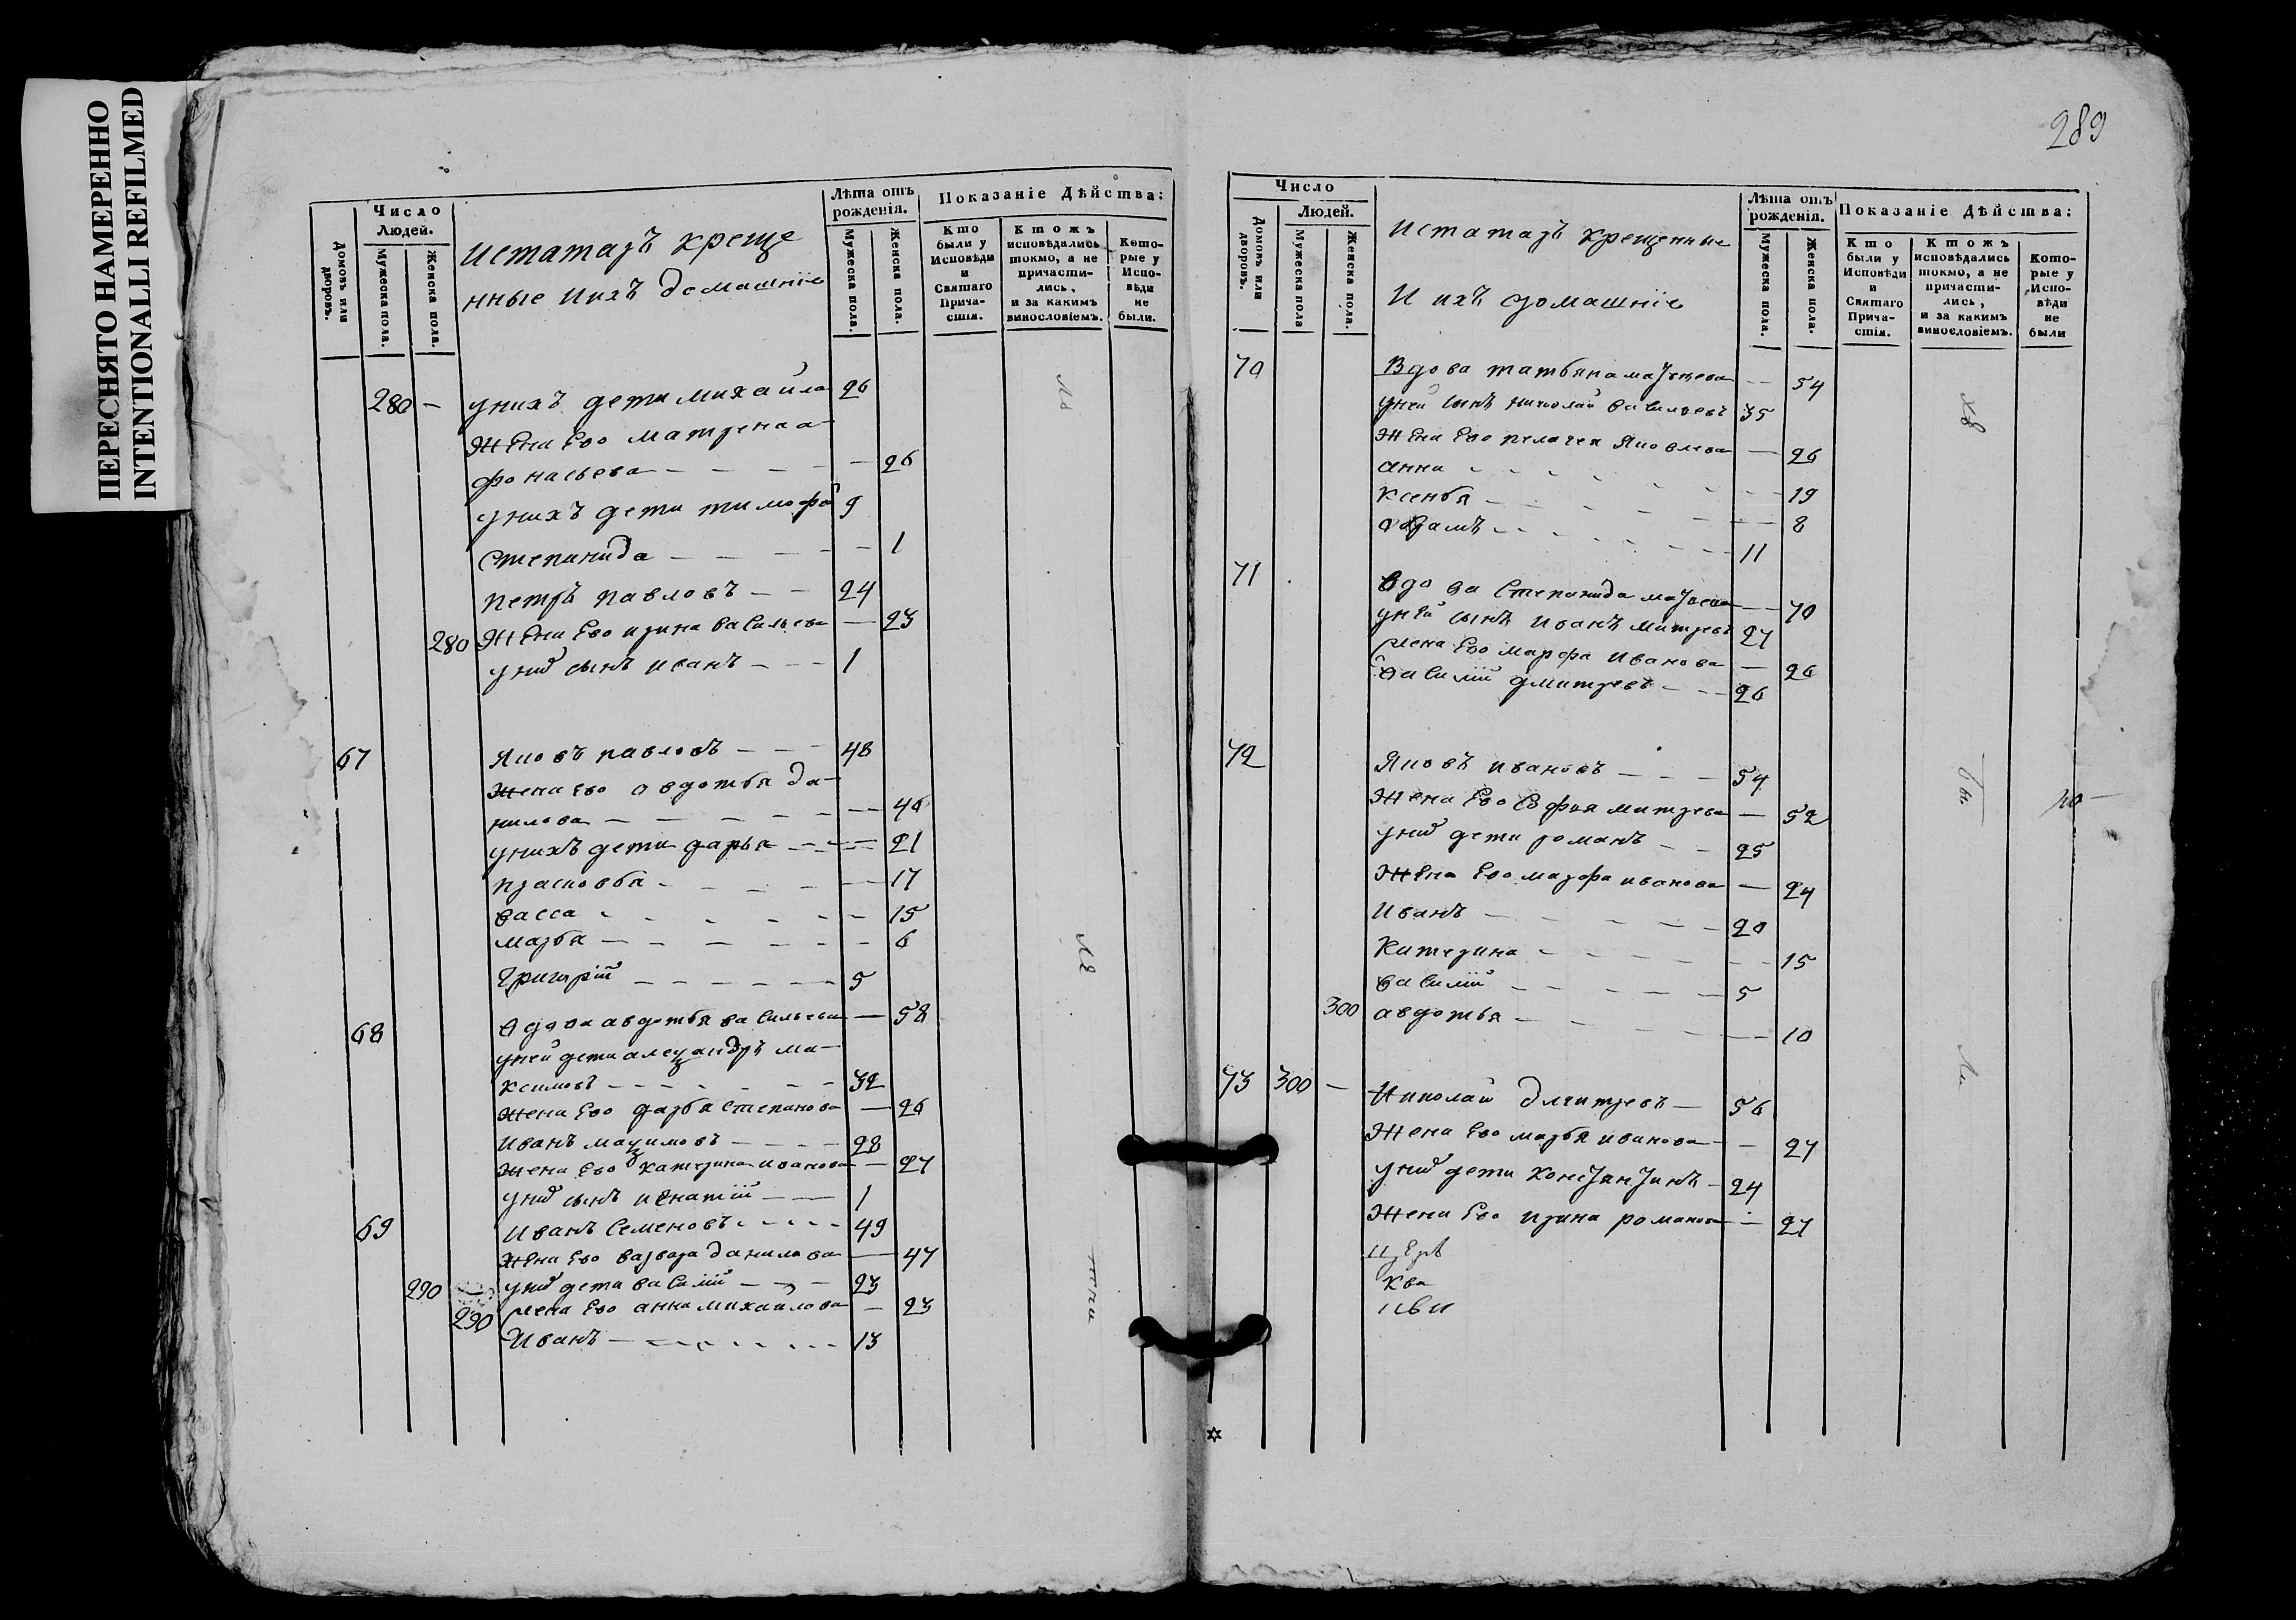 ПЕРЕСНЯТО НАМЕРЕННО
INTENTIONALLI REFILMED
Число
Людей.
Домовъ или дворовъ.
Мужеска пола.
Женска пола.
истатаръ креще
нные иихъ домашнїе
Лѣта отъ рожденія.
Мужеска пола.
Женска пола.
Показаніе Дѣйства:
Кто были у Исповѣди и Святаго Прича- стія.
Ктожъ исповѣдались токмо, а не причасти- лись, и за какимъ винословіемъ.
Кото- рые у Испо- вѣди не были.
280 — унихъ дети михайла 26
Жена Ево матрена а
фонасьева — — — — 26
унихъ дети тимофѣй 9
степанида — — — — 1
петръ павловъ — — 24
280 Жена Ево ирина васильева — 23
унихъ сынъ иванъ — — — 1
67 Яковъ павловъ — — — 48
Жена ево авдотья да—
нилова — — — — — 46
унихъ дети дарья — — — 21
прасковья — — — — — 17
васса — — — — — 15
марья — — — — — 6
Григорїй — — — — — 5
68 вдова авдотья васильева — 58
уней дети алеѯандръ ма—
ксимовъ — — — — — 32
жена Ево дарья степанова — 26
иванъ маѯимовъ — — — — 28
жена Ево катерина иванова — 27
унихъ сынъ игнатїй — — 1
69 иванъ семеновъ — — — — 49
жена Ево варвара данилова — 47
290 унихъ дети василїй — — — 23
290 жена Ево анна михайлова — 23
Иванъ — — — — — 13
289
Число
Людей.
Домовъ или дворовъ.
Мужеска пола
Женска пола.
истатаръ крещенные
И ихъ домашнїе
Лѣта отъ рожденія.
Мужеска пола.
Женска пола.
Показаніе Дѣйства:
Кто были у Исповѣди и Святаго Прича- стія.
Ктожъ исповѣдались токмо, а не причасти- лись, и за какимъ винословіемъ.
Кото- рые у Испо- вѣди не были
70 Вдова татьяна матвеева — 54
уней сынъ николай васильевъ 35
Жена Ево пелагея Яковлева — 26
анна — — — — — 19
ксенья — — — — — 8
аврамъ — — — — — 11
71 вдова степанида матвеева — 70
уней сынъ иванъ митревъ 27
жена Ево марфа иванова — 26
василїй дмитревъ — — — 26
72 Яковъ ивановъ — — — 54
Жена Ево Софья митрева — 52
унихъ дети романъ — — 25
Жена Ево марфа иванова — 24
Иванъ — — — — — 20
Катерина — — — — — 15
василїй — — — — — 5
300 авдотья — — — — — 10
73 300 — Николай дмитревъ — 56
Жена Ево марья иванова — 27
унихъ дети констянтинъ — 24
Жена Ево ирина романова — 27